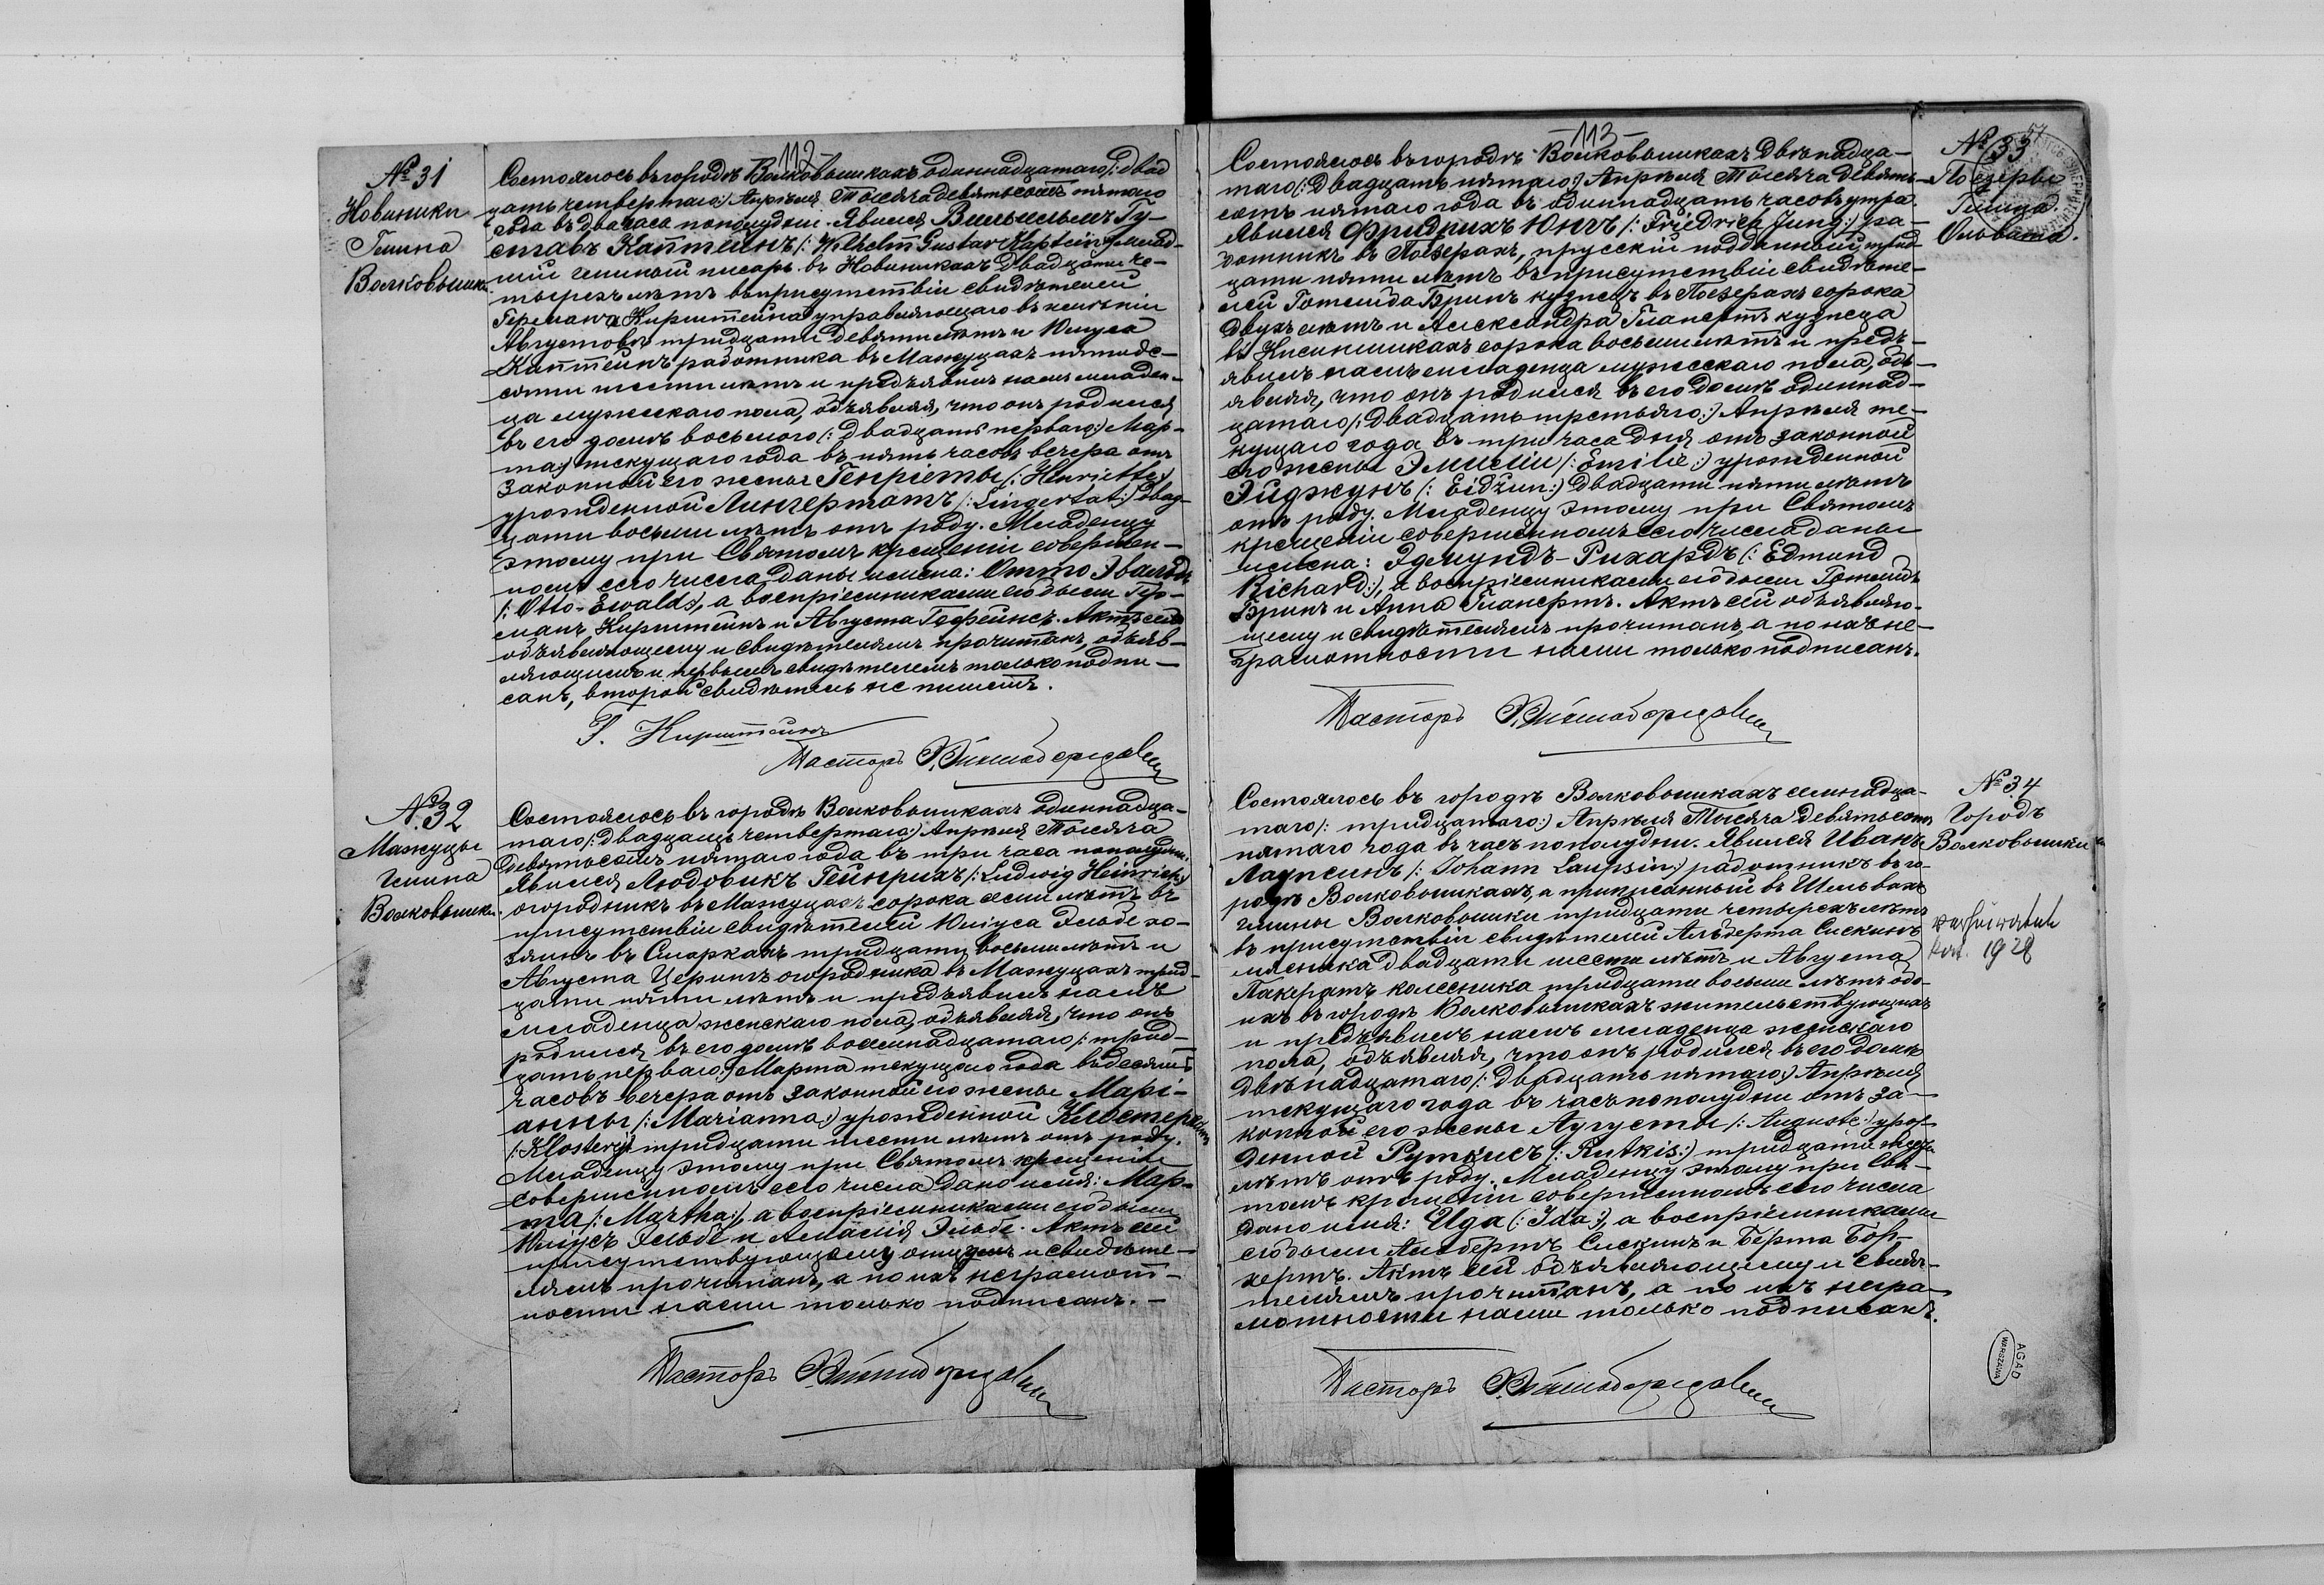 112
№ 31
Новиники
Гмина
Волковышки
Состоялось въ городѣ Волковышкахъ одиннадцатаго /: двад
цать четвертаго :/ Апрѣля Тысяча девятьсотъ пятаго
года въ два часа пополудни. Явился Вильгельмъ Гу-
ставъ Каптейнъ /: Wilhelm Gustav Kaptein :/ млад-
шій гминый писарь въ Новиникахъ двадцати че-
тырехъ лѣтъ въ присутствіи свидѣтелей
Германа Кирштейна управляющаго въ имѣніи
Августовъ тридцати девяти лѣтъ и Юлiуса
Каптейнъ работника въ Мажуцахъ пятиде-
сяти шести лѣтъ и предъявилъ намъ младен-
ца мужескаго пола, объявляя, что онъ родился
въ его домѣ восьмого /: двадцать перваго :/ Мар-
та :/ текущаго года въ пять часовъ вечера отъ
законной его жены Генріеты /: Henriette :/
урожденной Лингертатъ /: Lingertat :/ двад-
цати восьми лѣтъ отъ роду. Младенцу
этому при Святомъ крещеніи совершен-
номъ сего числа даны имена: Отто Эвальдъ
/: Otto-Ewald :/, а воспріемниками его были Гер-
манъ Кирштейнъ и Августа Гофейнсъ. Актъ сей
объявляющему и свидѣтелямъ прочитанъ, объяв-
ляющимъ и первымъ свидѣтелемъ только подпи-
санъ, второй свидѣтель не пишетъ.
Г. Кирштейнъ
Пасторъ
№ 32
Мажуцы
Гмина
Волковышки
Состоялось въ городѣ Волковышкахъ одиннадца-
таго /: двадцать четвертаго :/ Апрѣля Тысяча
девятьсотъ пятаго года въ три часа пополудни.
Явился Людовикъ Гейнрихъ /: Ludwig Heinrich :/
огородникъ въ Мажуцахъ сорока семи лѣтъ въ
присутствіи свидѣтелей Юліуса Эльбе хо-
зяинъ въ Смаркахъ тридцати восьми лѣтъ и
Августа Церитъ огородника въ Мажуцахъ трид-
цати пяти лѣтъ и предъявилъ намъ
младенца женскаго пола, объявляя, что онъ
родился въ его домѣ восемнадцатаго /: трид-
цать перваго :/ Марта текущаго года въ десять
часовъ вечера отъ законной его жены Марі-
анны /: Marianna :/ урожденной
тридцати шести лѣтъ отъ роду.
Младенцу этому при Святомъ крещеніи
совершенномъ сего числа дано имя: Мар-
та /: Martha :/, а воспріемниками его были
Юліусъ Эльбе и Амалія Эльбе. Актъ сей
присутствующему отцу и свидѣте-
лямъ прочитанъ, а по ихъ неграмот-
ности нами только подписанъ. —
Пасторъ
113
№ 33
Поезеры
Гмина
Ольвита.
Состоялось въ городѣ Волковышкахъ двѣнадца-
таго /: двадцать пятаго :/ Апрѣля Тысяча девять-
сотъ пятаго года въ одиннадцать часовъ утра.
Явился Фридрихъ Юнгъ /: Friedrich Jung :/ ра-
ботникъ въ Поезерахъ, прусскій подданный, трид
цати пяти лѣтъ въ присутствіи свидѣте-
лей Готлида Бринъ кузнецъ въ Поезерахъ сорока
двухъ лѣтъ и Александра Гланертъ кузнеца
въ Кисинишкахъ сорока восьми лѣтъ и предъ-
явилъ намъ младенца мужескаго пола, объ-
являя, что онъ родился въ его домѣ одиннад-
цатаго /: двадцать третьяго :/ Апрѣля те-
кущаго года въ три часа дня отъ законной
его жены Эмиліи /: Emilie :/ урожденной
Эйджунъ /: Eidžun :/ двадцати пяти лѣтъ
отъ роду. Младенцу этому при Святомъ
крещеніи совершенномъ сего числа даны
имена: Эдмундъ-Рихардъ /: Edmund
Richard :/, а воспріемниками его были Готлидъ
Бринъ и Анна Гланертъ. Актъ сей объявляю-
щему и свидѣтелямъ прочитанъ, а по ихъ не-
грамотности нами только подписанъ.
Пасторъ
№ 34
Городъ
Волковышки
1928
Состоялось въ городѣ Волковышкахъ семнадца-
таго /: тридцатаго :/ Апрѣля Тысяча девятьсотъ
пятаго года въ часъ пополудни. Явился Иванъ
Лаупсинъ /: Johann Laupsin :/ работникъ въ го-
родѣ Волковышкахъ, а приписанный въ Шельвахъ
гмины Волковышки тридцати четырехъ лѣтъ
въ присутствіи свидѣтелей Альберта Сискинъ
мясника двадцати шести лѣтъ и Августа
Пакератъ колесника тридцати восьми лѣтъ обо-
ихъ въ городѣ Волковышкахъ жительствующихъ
и предъявилъ намъ младенца женскаго
пола, объявляя, что онъ родился въ его домѣ
двѣнадцатаго /: двадцать пятаго :/ Апрѣля
текущаго года въ часъ пополудни отъ за-
конной его жены Аугусты /: Auguste :/ урож-
денной Руткисъ /: Rutkis :/ тридцати
лѣтъ отъ роду. Младенцу этому при Свя-
томъ крещеніи совершенномъ сего числа
дано имя: Ида /: Ida :/, а воспріемниками
его были Альбертъ Сискинъ и Берта Бор-
хертъ. Актъ сей объявляющему и свидѣ-
телямъ прочитанъ, а по ихъ негра-
мотности нами только подписанъ.
Пасторъ
AGAD
WARSZAWA